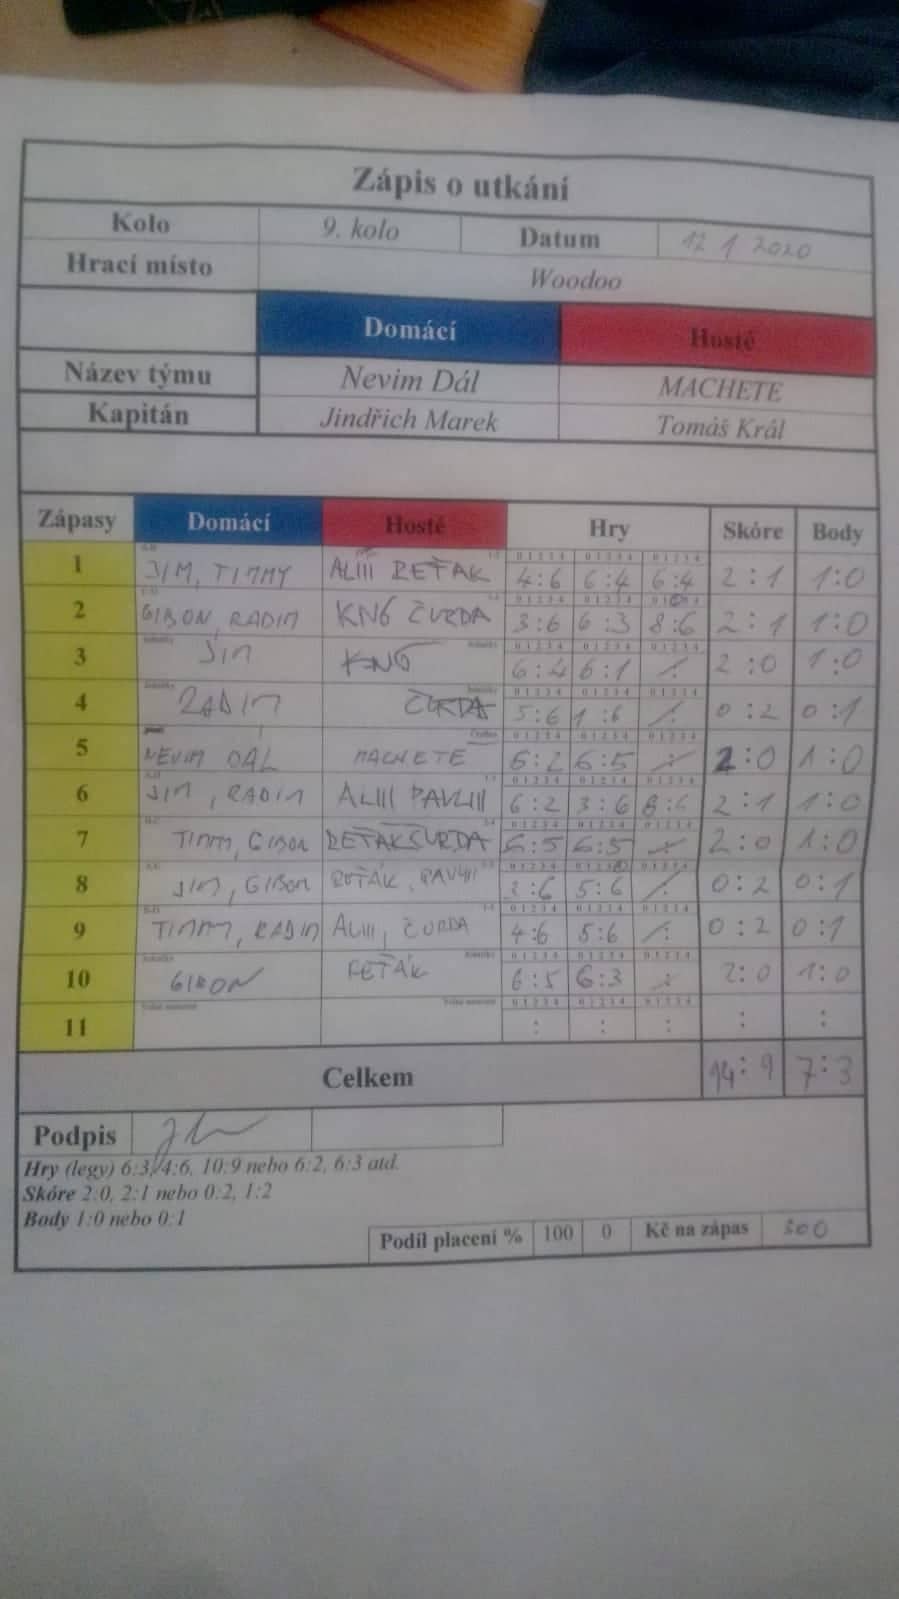 Zápis o utkání
Kolo 9. kolo Datum 12 1 2020
Hrací místo Woodoo
Domácí Hosté
Název týmu Nevim Dál MACHETE
Kapitán Jindřich Marek Tomáš Král
Zápasy Domácí Hosté Hry Skóre Body
1 JIM, TIMMY ALIII REŤÁK 4:6 6:4 6:4 2:1 1:0
2 GIBON, RADIM KNG ČURDA 3:6 6:3 8:6 2:1 1:0
3 JIM KNG 6:4 6:1 : 2:0 1:0
4 RADIM ČURDA 5:6 1:6 : 0:2 0:1
5 NEVIM DÁL MACHETE 6:2 6:5 : 2:0 1:0
6 JIM, RADIM ALIII PAVLIII 6:2 3:6 8:6 2:1 1:0
7 TIMM, GIBON REŤÁK ČURDA 6:5 6:5 : 2:0 1:0
8 JIM, GIBON REŤÁK, PAVLIII 3:6 5:6 : 0:2 0:1
9 TIMMY, RADIM ALIII, ČURDA 4:6 5:6 : 0:2 0:1
10 GIBON REŤÁK 6:5 6:3 : 2:0 1:0
11 : : : : :
Celkem 14:9 7:3
Podpis
Hry (legy) 6:3, 4:6, 10:9 nebo 6:2, 6:3 atd.
Skóre 2:0, 2:1 nebo 0:2, 1:2
Body 1:0 nebo 0:1
Podíl placení % 100 0 Kč na zápas 300